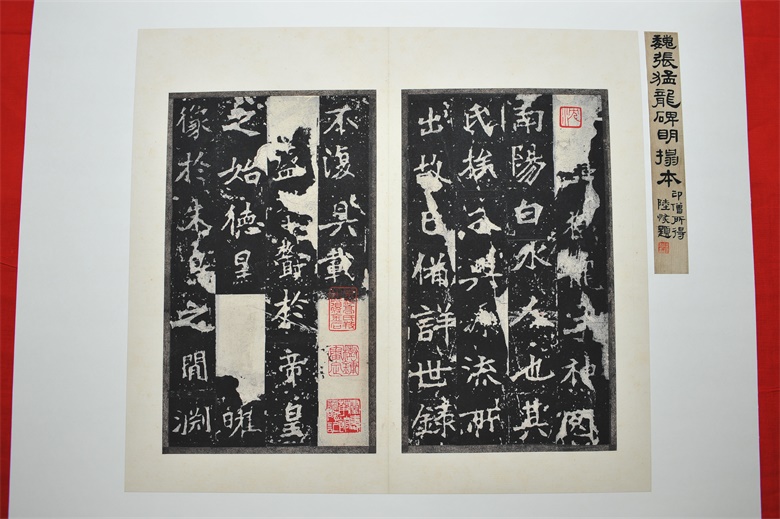 魏張猛龍碑明搨本
印僧所得
陸恢題
龍字神冏
南陽白水人也其
氏族分興源流所
出故已備詳世錄
不復具載
益於帝皇
之始德星曜
像於朱鳥之間淵